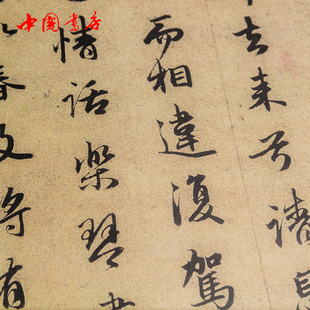 中國書房
去来兮請息
而相違復駕
情話樂琴
春及將有